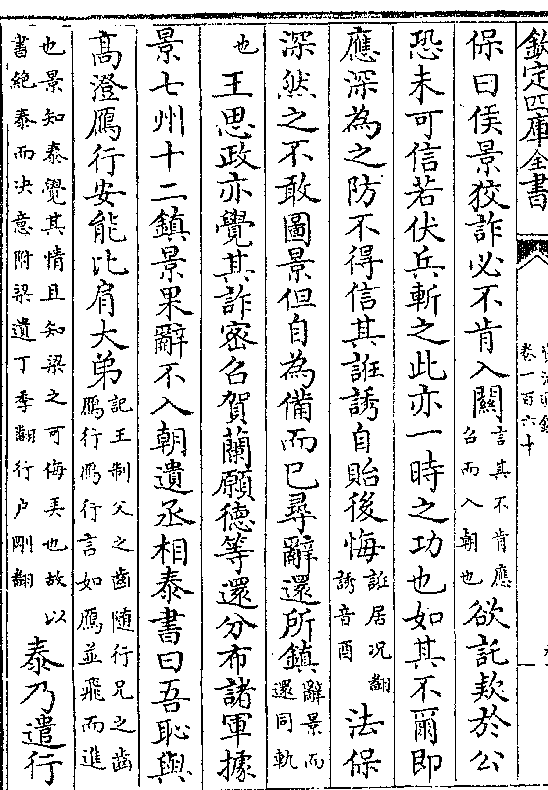 欽定四庫全書
卷一百六十
保曰侯景狡詐必不肯入關言其不肯應召而入朝也欲託欵於公
恐未可信若伏兵斬之此亦一時之功也如其不爾即
應深為之防不得信其誑誘自貽後悔誑居况翻誘音酉法保
深然之不敢圖景但自為備而已尋辭還所鎮辭景而還同軌
也王思政亦覺其詐密召賀蘭願德等還分布諸軍據
景七州十二鎮景果辭不入朝遺丞相泰書曰吾恥與
高澄鴈行安能比肩大弟記王制父之齒随行兄之齒鴈行鴈行言如鴈並飛而進
也景知泰覺其情且知梁之可悔弄也故以書絶泰而决意附梁遺丁季翻行户剛翻泰乃遣行